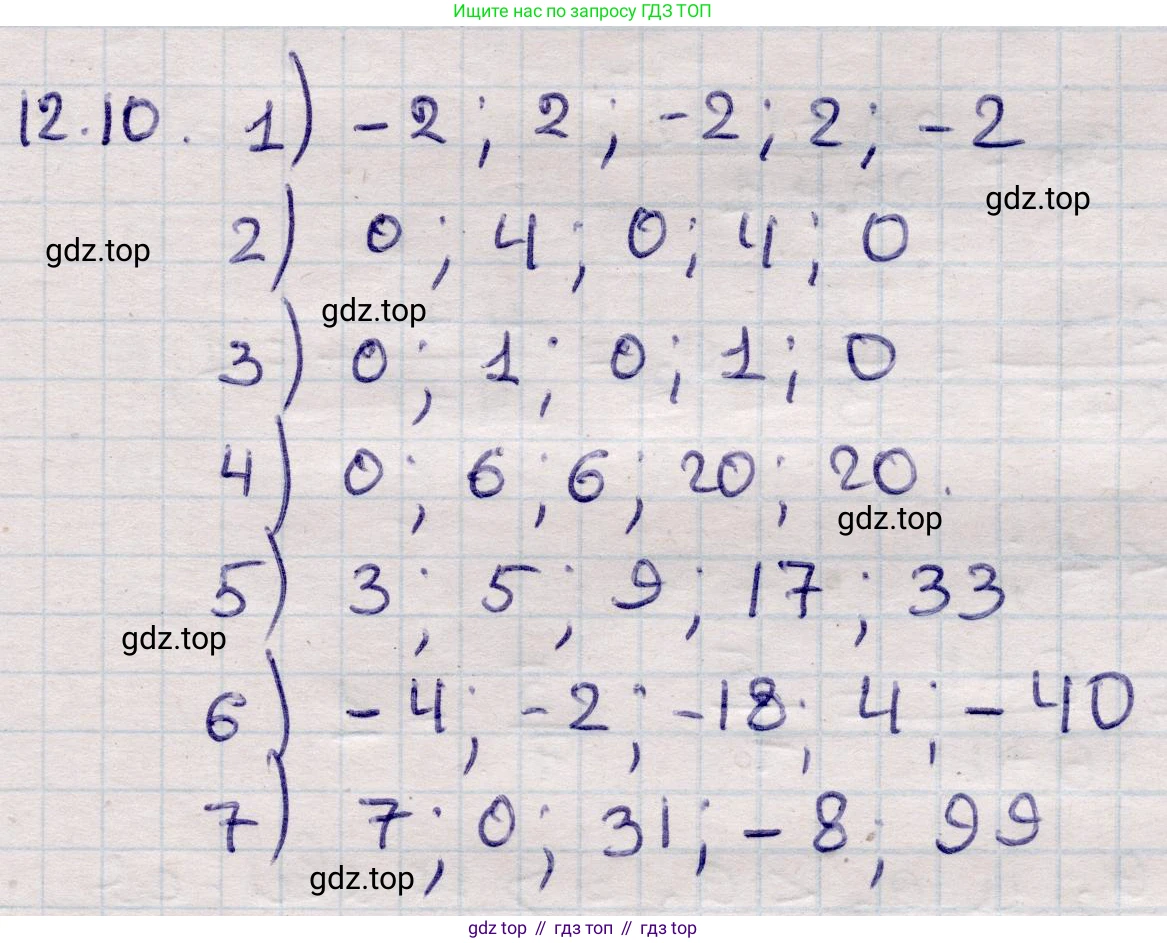 Ищите нас по запросу ГДЗ ТОП
12.10. 1) -2; 2; -2; 2; -2
gdz.top
gdz.top 2) 0; 4; 0; 4; 0
gdz.top
3) 0; 1; 0; 1; 0
4) 0; 6; 6; 20; 20.
gdz.top
5) 3; 5; 9; 17; 33
gdz.top
6) -4; -2; -18; 4; -40
7) 7; 0; 31; -8; 99
gdz.top
gdz top // гдз топ // gdz top